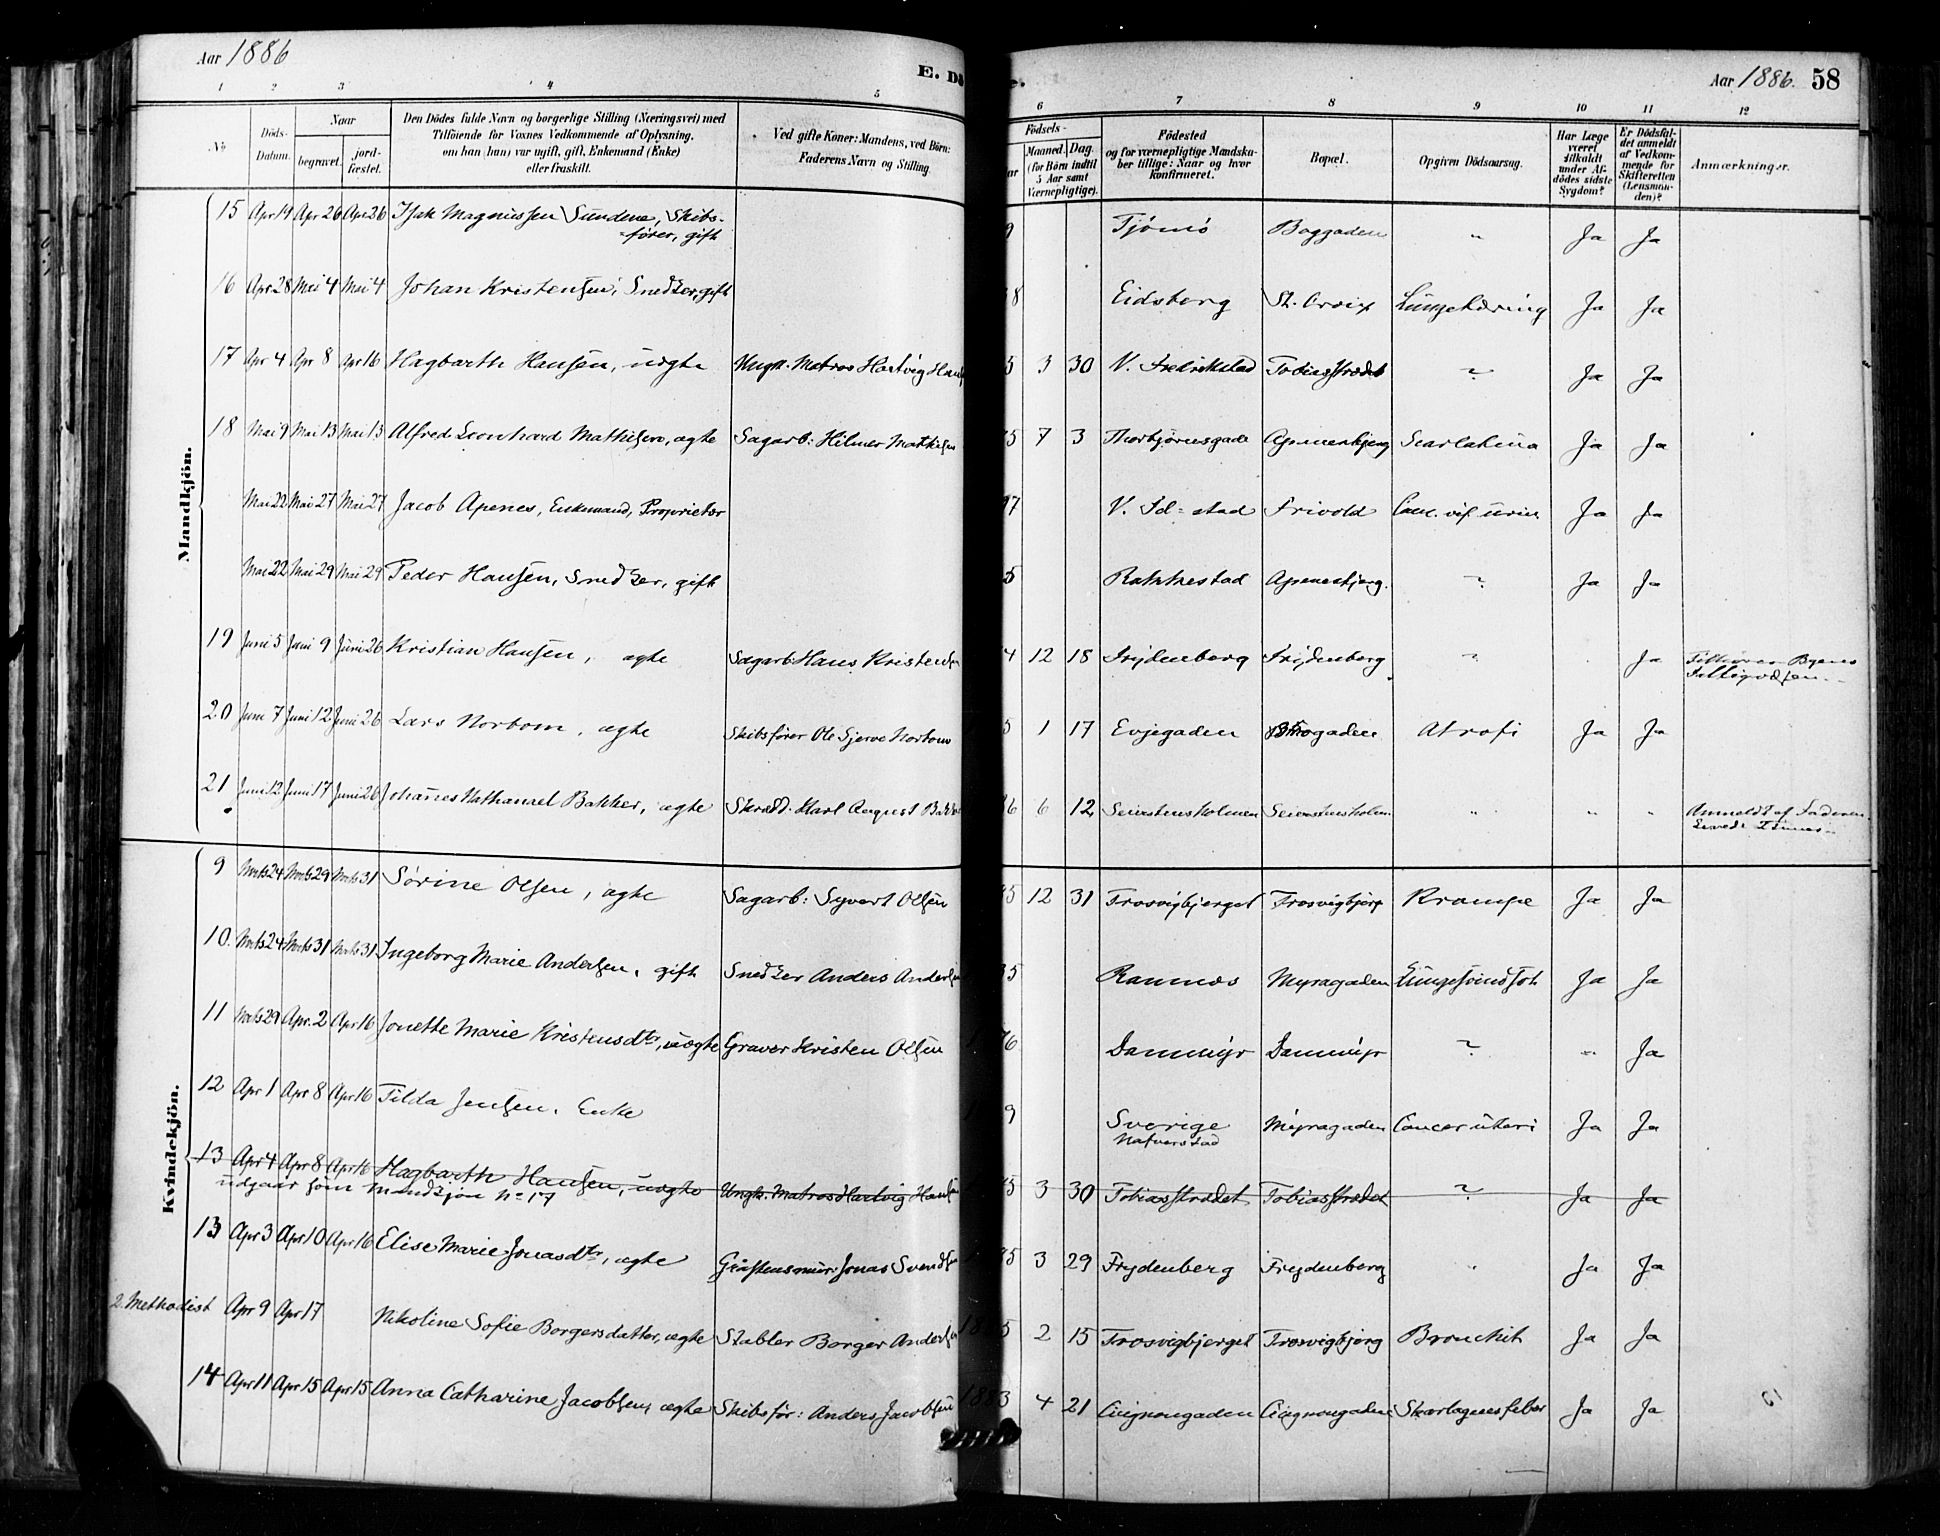 Aar 1886
E. Dö
Aar 1886. 58
1 2 3 4 5 6 7 8 9 10 11 12
No
Döds-Datum.
Naar
begravet.
jord-fæstet.
Den Dödes fulde Navn og borgerlige Stilling (Næringsvei) med
Tilföiende for Voxnes Vedkommende af Oplysning,
om han (hun) var ugift, gift, Enkemand (Enke)
eller fraskilt.
Ved gifte Koner: Mandens, ved Börn:
Faderens Navn og Stilling.
Födsels-
Maaned. Dag.
(for Börn indtil
5 Aar samt
Værnepligtige).
Födested
og for værnepligtige Mandska-
ber tillige: Naar og hvor
konfirmeret.
Bopæl.
Opgiven Dödsaarsag.
Har Læge
været
tilkaldt
under Af-
dödes sidste
Sygdom?
Er Dödsfal-
det anmeldt
af Vedkom-
mende for
Skifteretten
(Lensman-
den)?
Anmærkninger.
Mandkjön.
15 Apr 19 Apr 26 Apr 26 Isak Magnussen Sundene, Skibs-
fører, gift 9 Tjømø Baggaden " Ja Ja
16 Apr 28 Mai 4 Mai 4 Johan Kristensen, Snedker, gift 8 Eidsberg St. Croix Lungetæring Ja Ja
17 Apr 4 Apr 8 Apr 16 Hagbarth Hansen, uægte Ungk. Matros Hartvig Hans 5 3 30 V. Fredrikstad Tobiasstrædet ? Ja Ja
18 Mai 9 Mai 13 Mai 13 Alfred Leonhard Mathisen, ægte Sagarb: Hilmer Mathisen 5 7 3 Thorbjørnsgade Apenesbjerg Scarlatina Ja Ja
Mai 22 Mai 27 Mai 27 Jacob Apenes, Enkemand, Proprietær 7 V. Fd=stad Frivold Canc. vis. urin. Ja Ja
Mai 22 Mai 29 Mai 29 Peder Hansen, Snedker, gift 5 Rakkestad Apenesbjerg. ? Ja Ja
19 Juni 5 Juni 9 Juni 26 Kristian Hansen, ægte Sagarb. Hans Kristensen 4 12 18 Frydenberg Frydenberg ? Ja Tilhører Byens
Fattigvæsen
20 Juni 7 Juni 12 Juni 26 Lars Norbom, ægte Skibsfører Ole Sjerve Norbom 5 1 17 Evjegaden Brogaden Atrofi Ja Ja
21 Juni 12 Juni 17 Juni 26 Johannes Nathanael Bakker, ægte Skræd: Karl August Bakke 6 6 12 Seierstensholmen Seierstensholm " " " Anmeldt af Faderen
Levede Timer
Kvindekjön.
9 Marts 24 Marts 29 Marts 31 Sørine Olsen, ægte Sagarb: Syvert Olsen 5 12 31 Trosvigbjerget Trosvigbjerg Krampe Ja Ja
10. Marts 24 Marts 31 Marts 31 Ingeborg Marie Andersen, gift Snedker Anders Andersen 5 Ramnæs Myragaden Lungesvindsot Ja Ja
11 Marts 29 Apr. 2 Apr 16 Jonette Marie Kristensdtr, uægte Graver Kristen Olsen 76 Dammyr Dammyr ? " Ja
12 Apr 1 Apr 8 Apr 16 Tilda Jensen, Enke 9 Sverige
Nafverstad Myragaden Cancer uteri Ja Ja
13 Apr 4 Apr 8 Apr 16 Hagbarth Hansen, uægte Ungk. Matros Hartvig Hansen 5 3 30 Tobiasstrædet Tobiasstrædet ? Ja Ja
udgaar som Mandkjøn No 17
13 Apr 3 Apr 10 Apr 16 Elise Marie Jonasdtr, ægte Graastensmur: Jonas Svendsen 5 3 29 Frydenberg Frydenberg " Ja Ja
2. Methodist Apr 9 Apr 17 Nikoline Sofie Borgersdatter, ægte Stabler Borger Andersen 18 5 2 15 Trosvigbjerget Trosvigbjerg Bronchit Ja Ja
14 Apr 11 Apr 15 Apr 15 Anna Catharine Jacobsen, ægte Skibsfør: Anders Jacobsen 1883 4 21 Cicignongaden Cicignongaden Skarlagensfeber Ja Ja